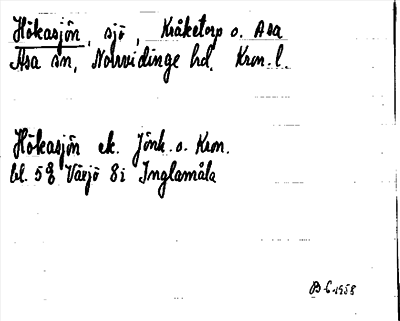 Hökasjön, sjö, Kråketorp o. Asa
Asa sn, Norrvidinge hd. Kron. l.
Hökasjön ek. Jönk. o. Kron.
bl. 58 Växjö 8i Inglamåla
B-G 1958